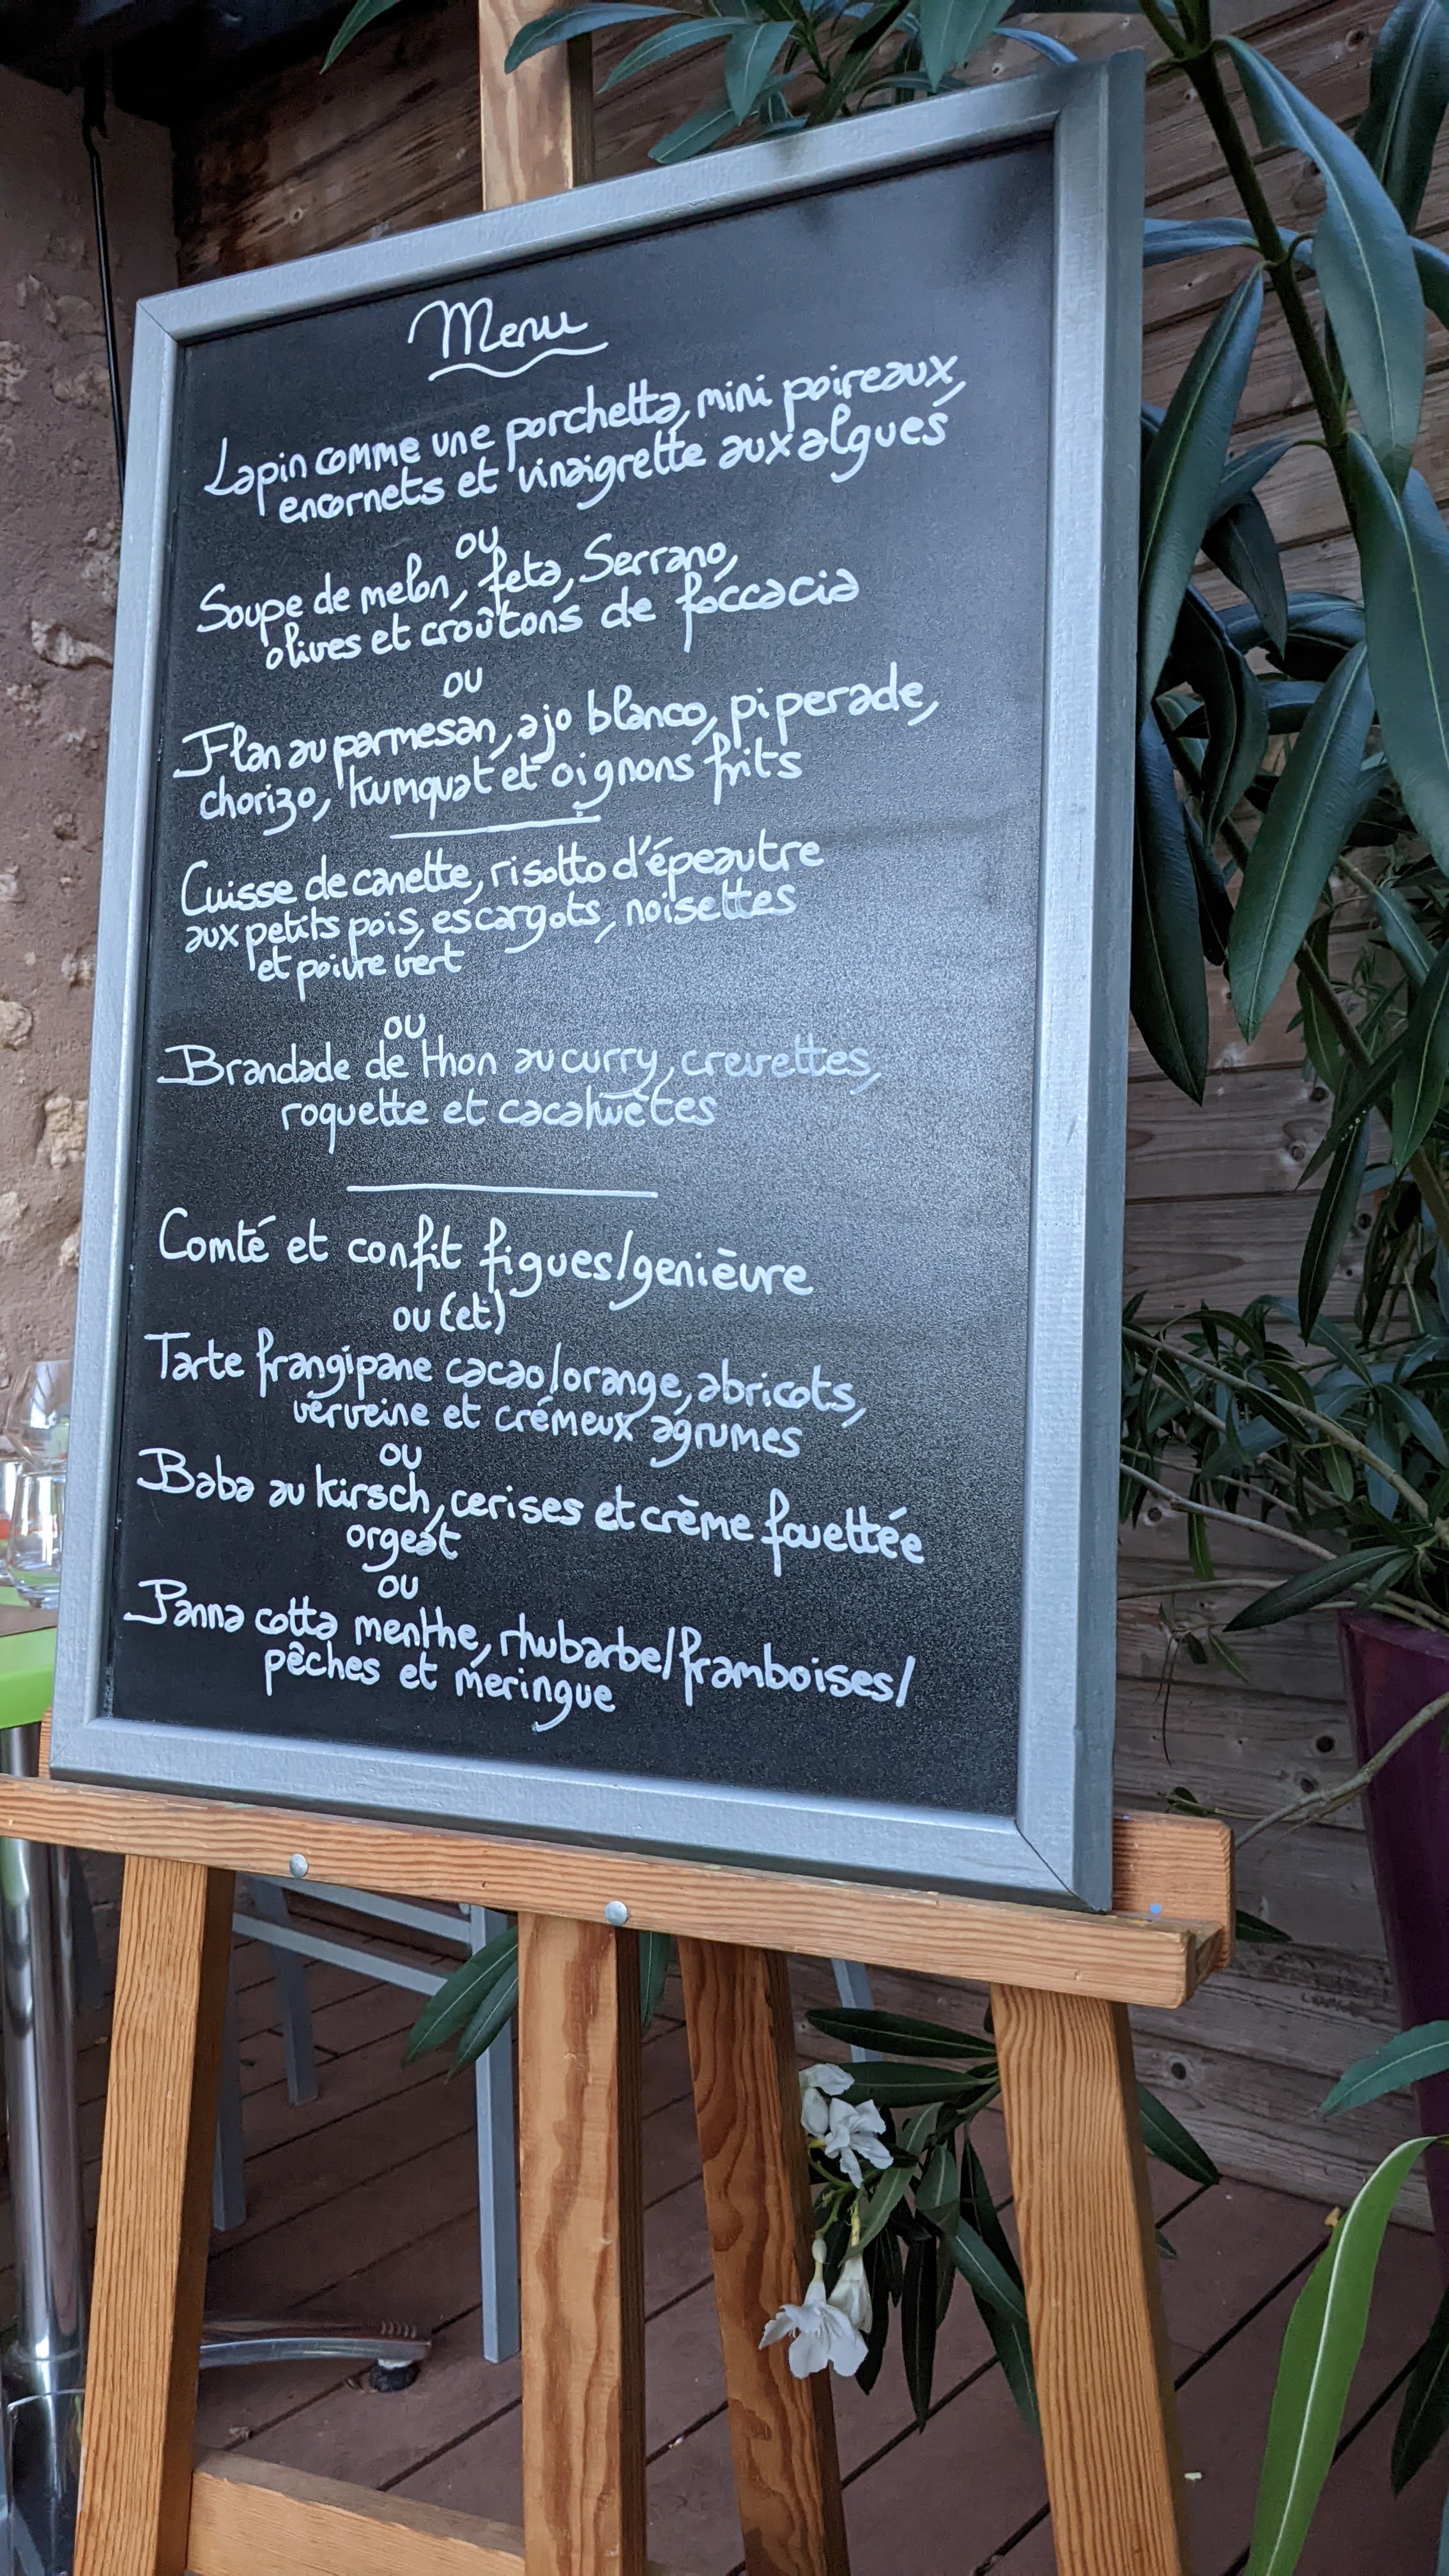 Menu
Lapin comme une porchetta, mini poireaux,
encornets et vinaigrette aux algues
ou
Soupe de melon, feta, Serrano,
olives et croûtons de foccacia
ou
Flan au parmesan, ajo blanco, piperade,
chorizo, kumquat et oignons frits
Cuisse de canette, risotto d'épeautre
aux petits pois, escargots, noisettes
et poivre vert
ou
Brandade de thon au curry, crevettes,
roquette et cacahuètes
Comté et confit figues/genièvre
ou (et)
Tarte frangipane cacao/orange, abricots,
verveine et crémeux agrumes
ou
Baba au kirsch, cerises et crème fouettée
orgeat
ou
Panna cotta menthe, rhubarbe/framboises/
pêches et meringue